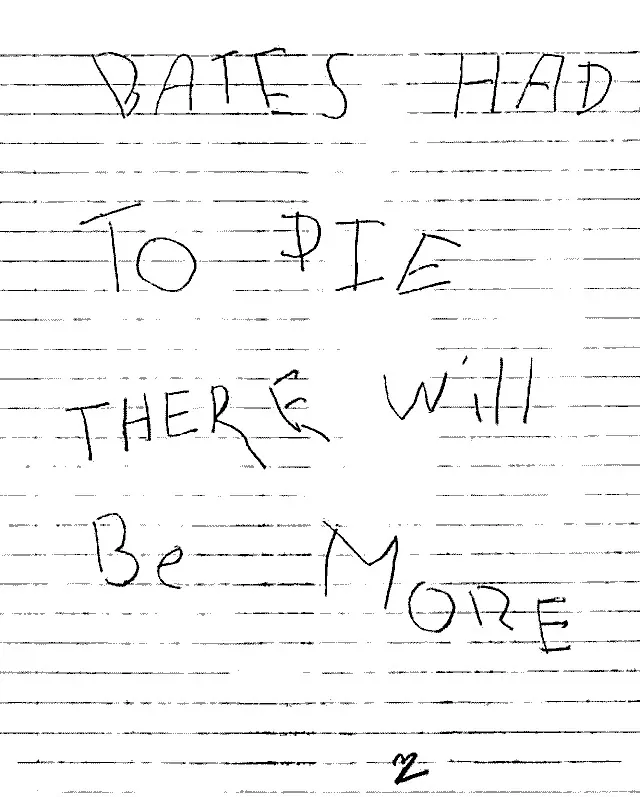 BATES HAD
TO DIE
THERE WiLL
Be MORE
2